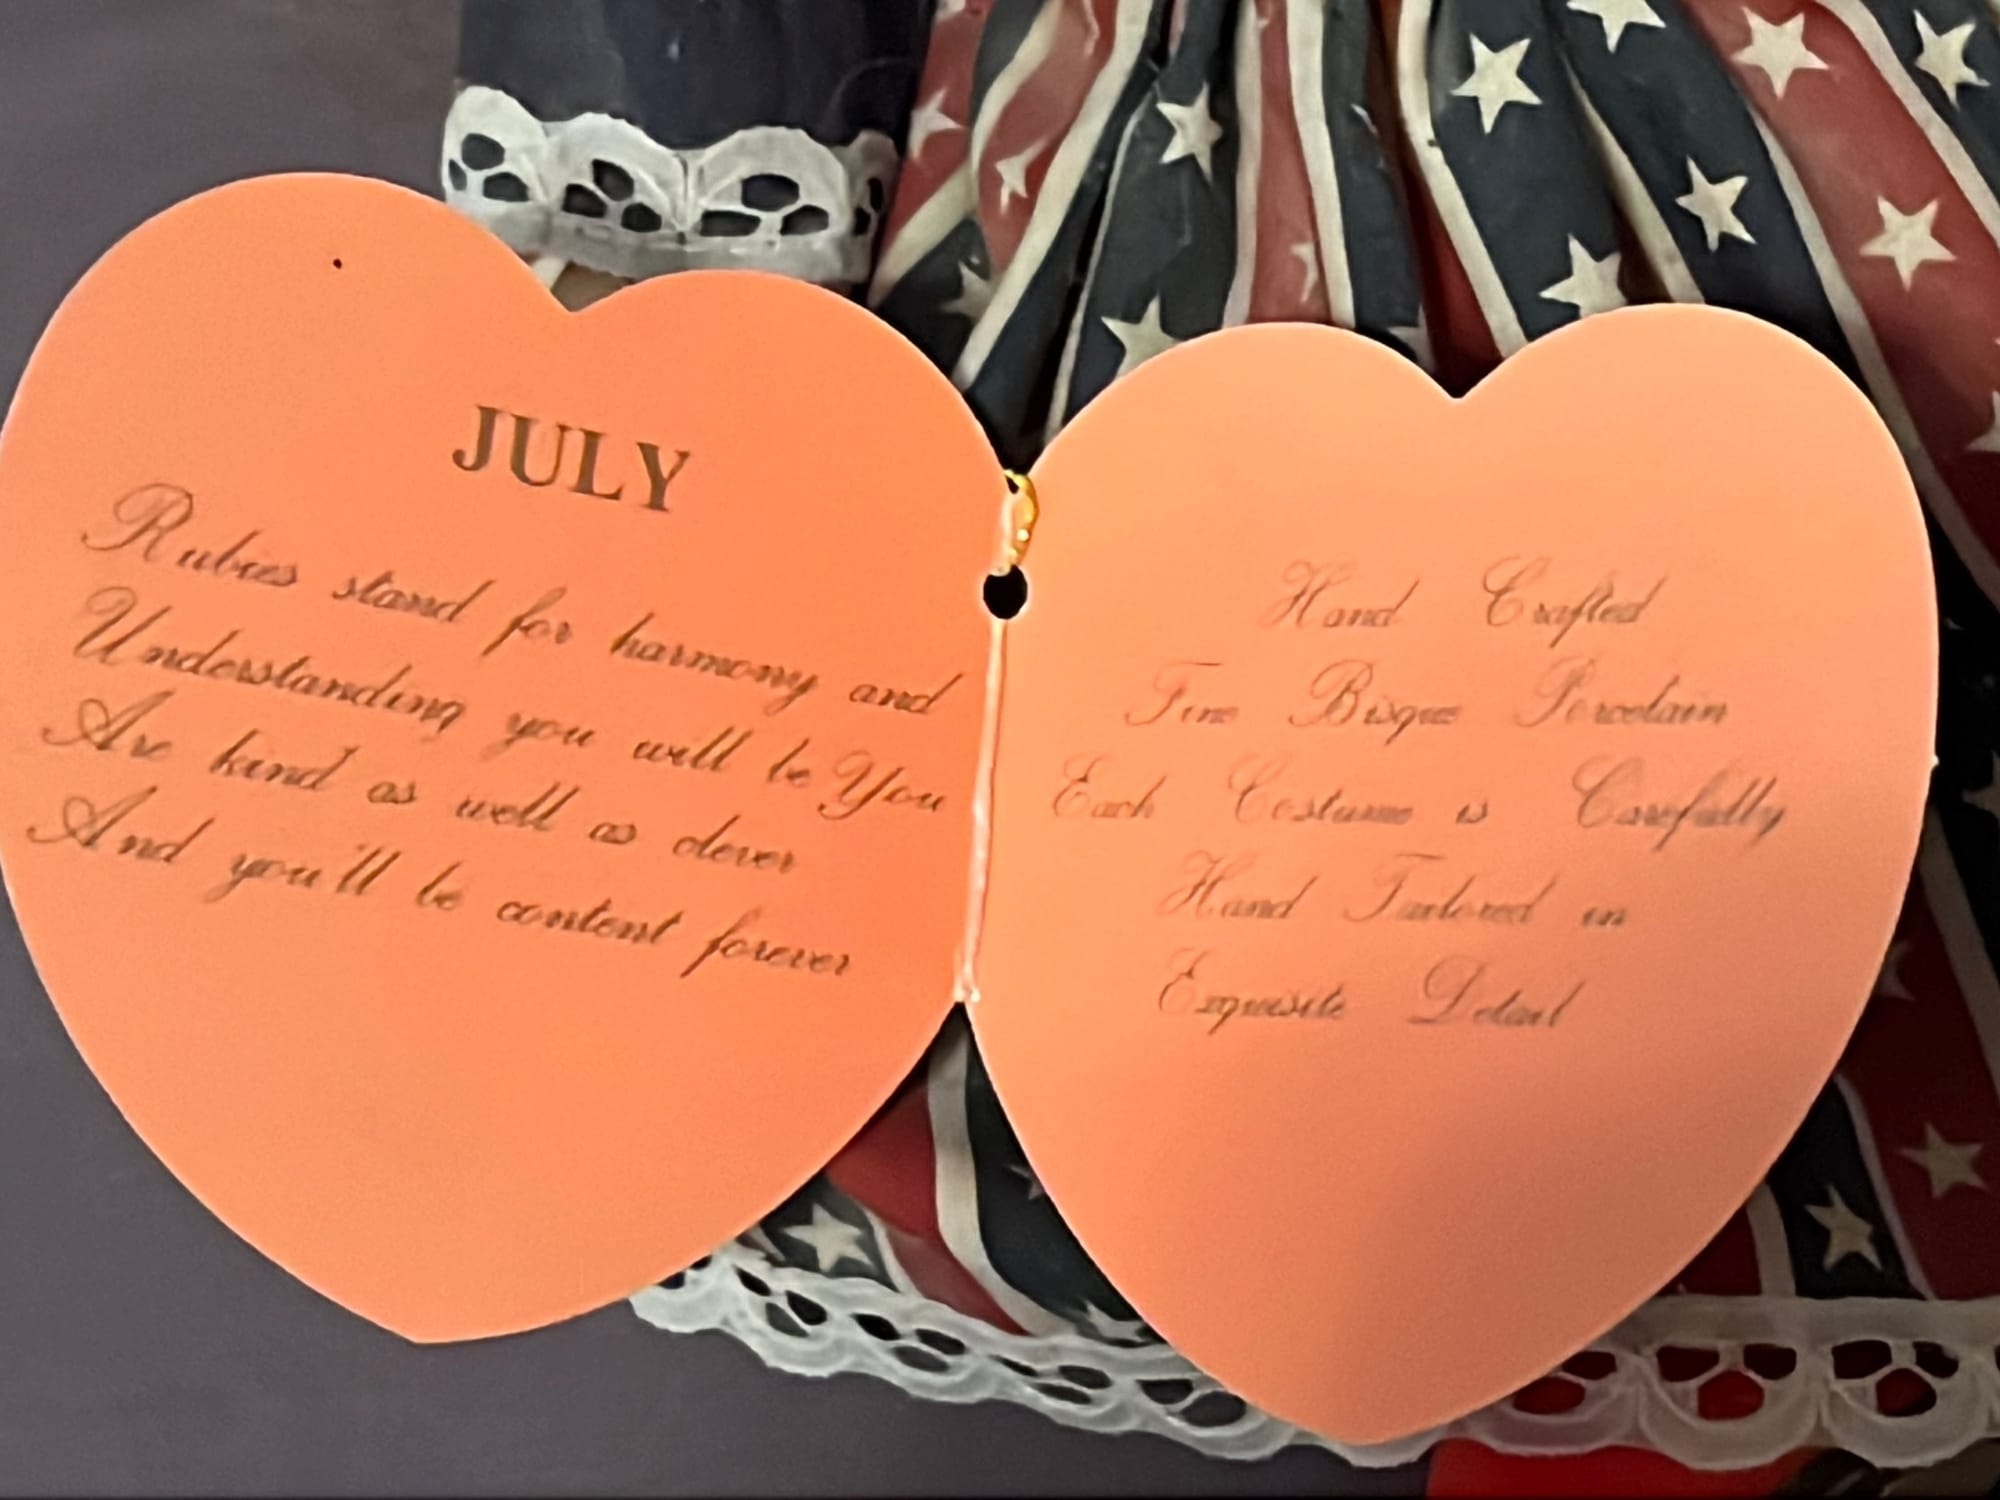 JULY
Rubies stand for harmony and
Understanding you will be You
Are kind as well as clever
And you'll be content forever
Hand Crafted
Fine Bisque Porcelain
Each Costume is Carefully
Hand Tailored in
Exquisite Detail